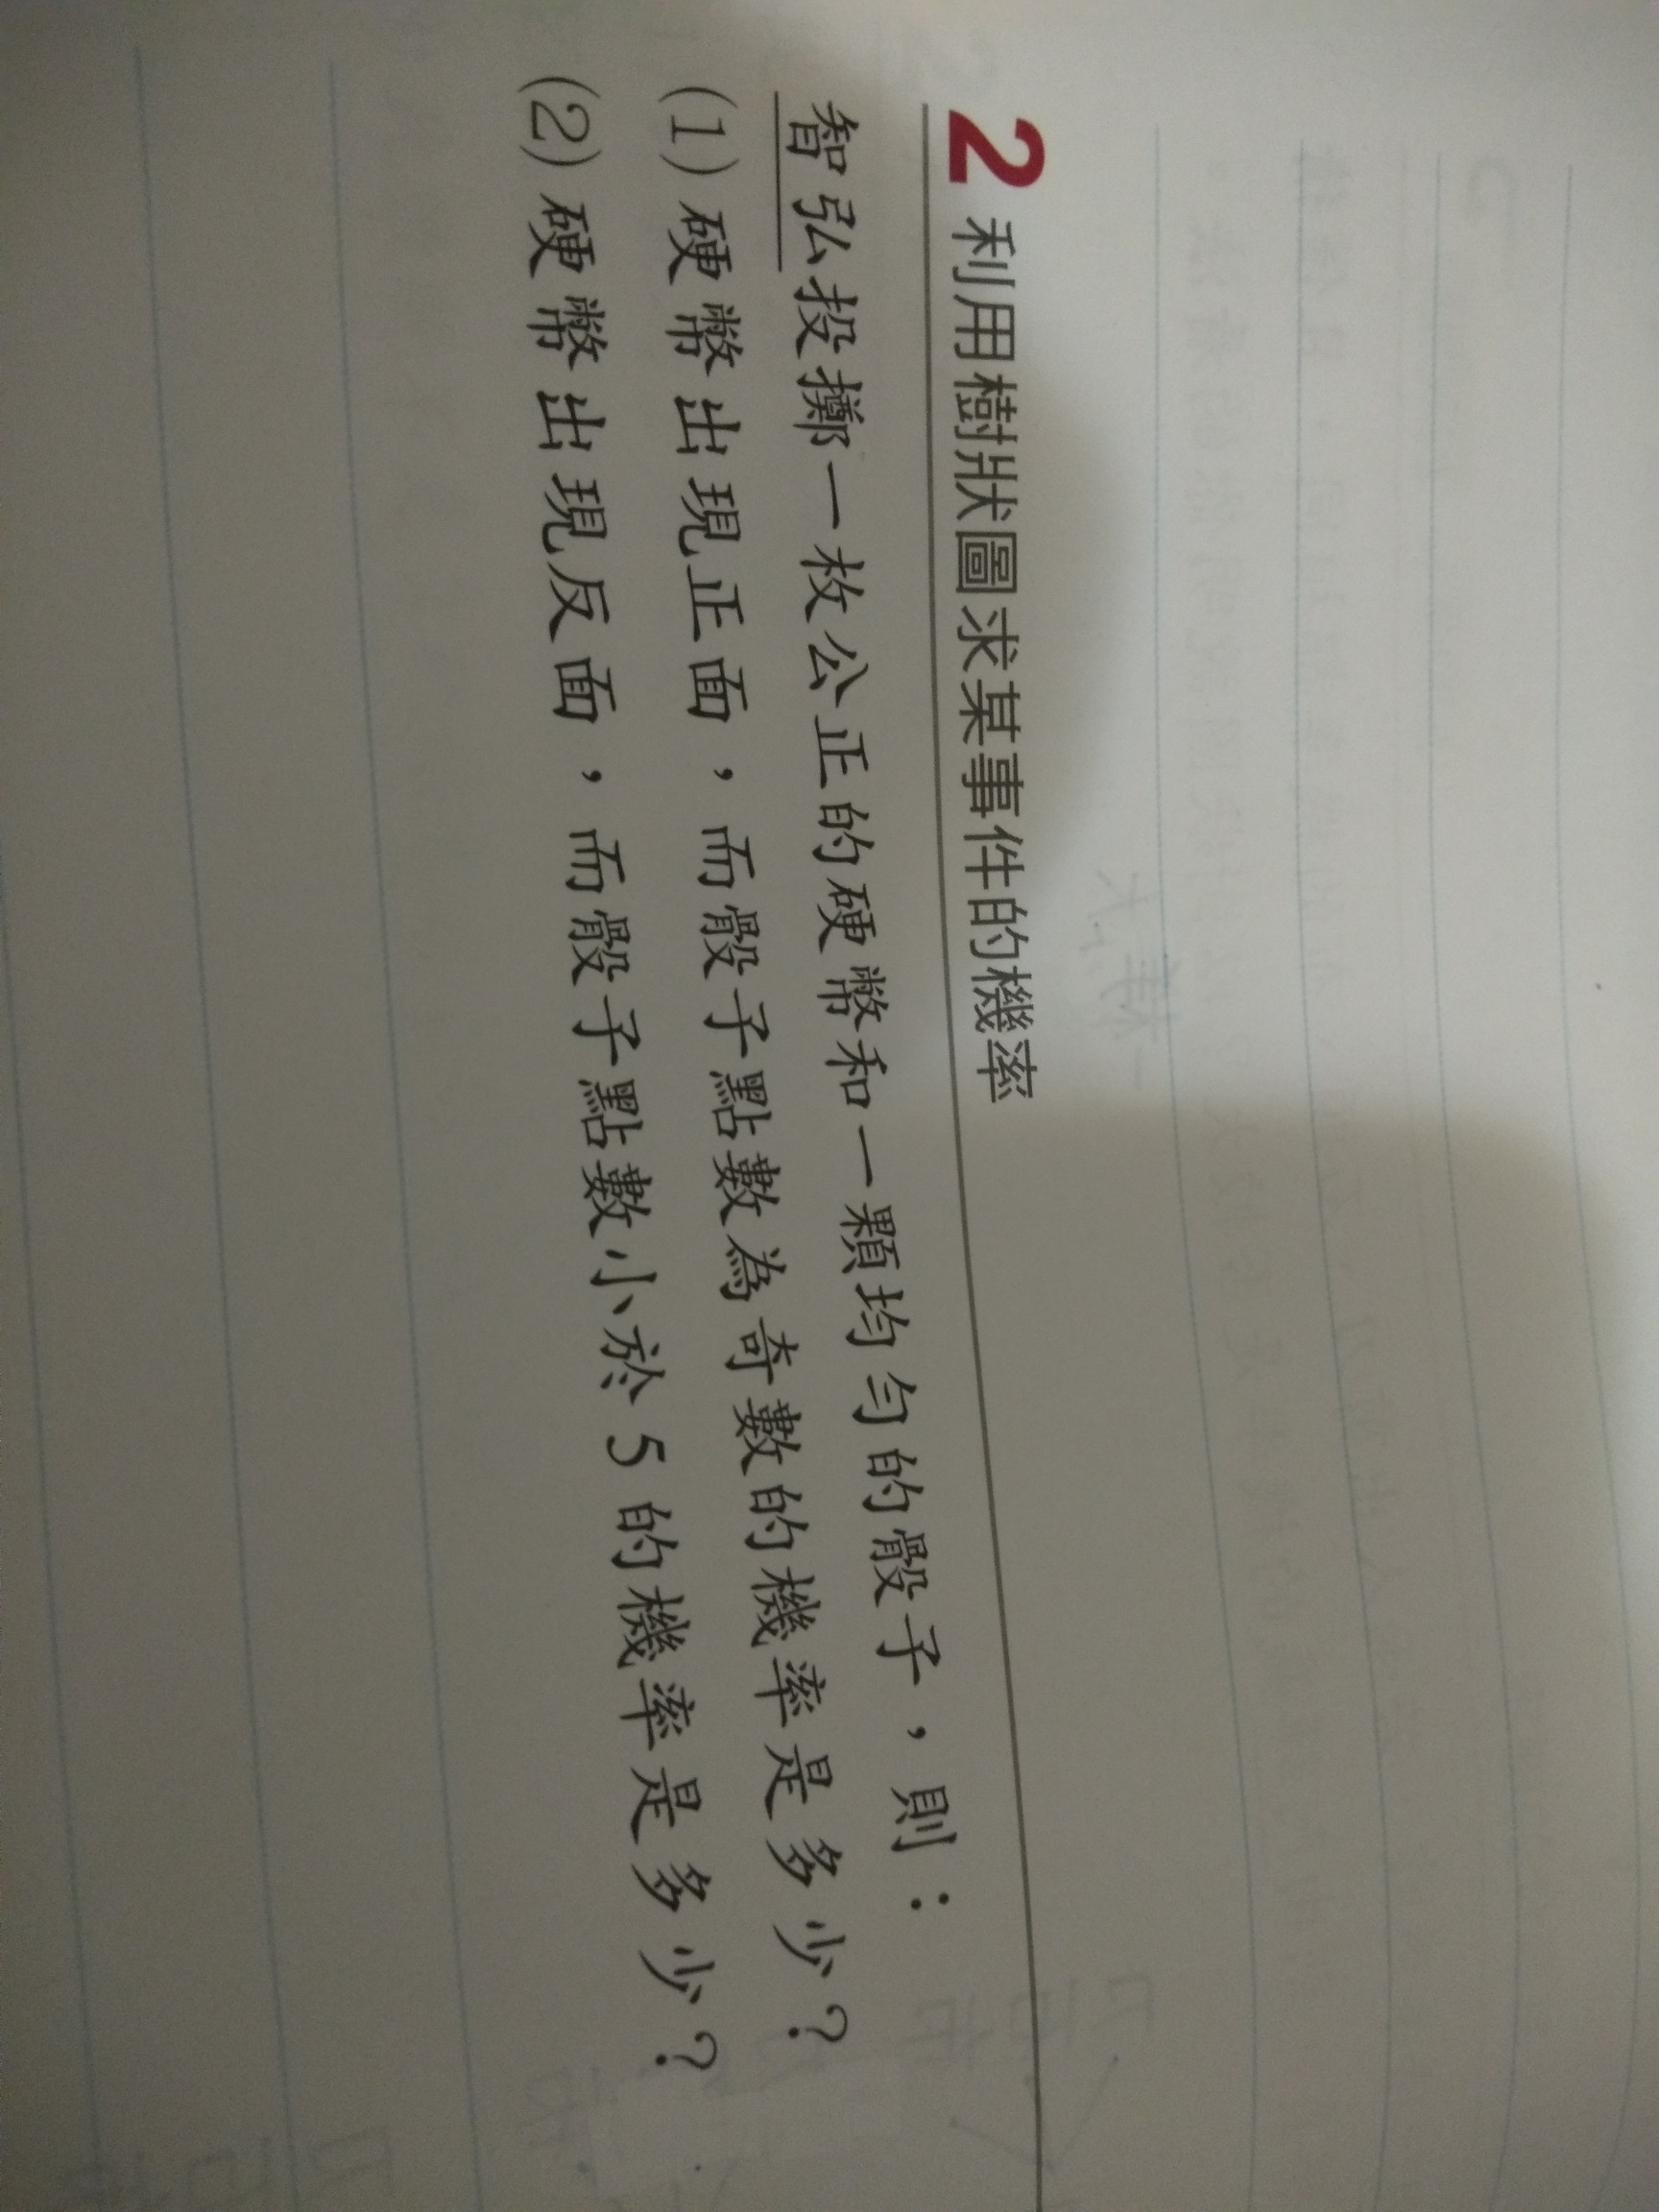 2 利用樹狀圖求某事件的機率
智弘投擲一枚公正的硬幣和一顆均勻的骰子，則：
(1) 硬幣出現正面，而骰子點數為奇數的機率是多少？
(2) 硬幣出現反面，而骰子點數小於 5 的機率是多少？